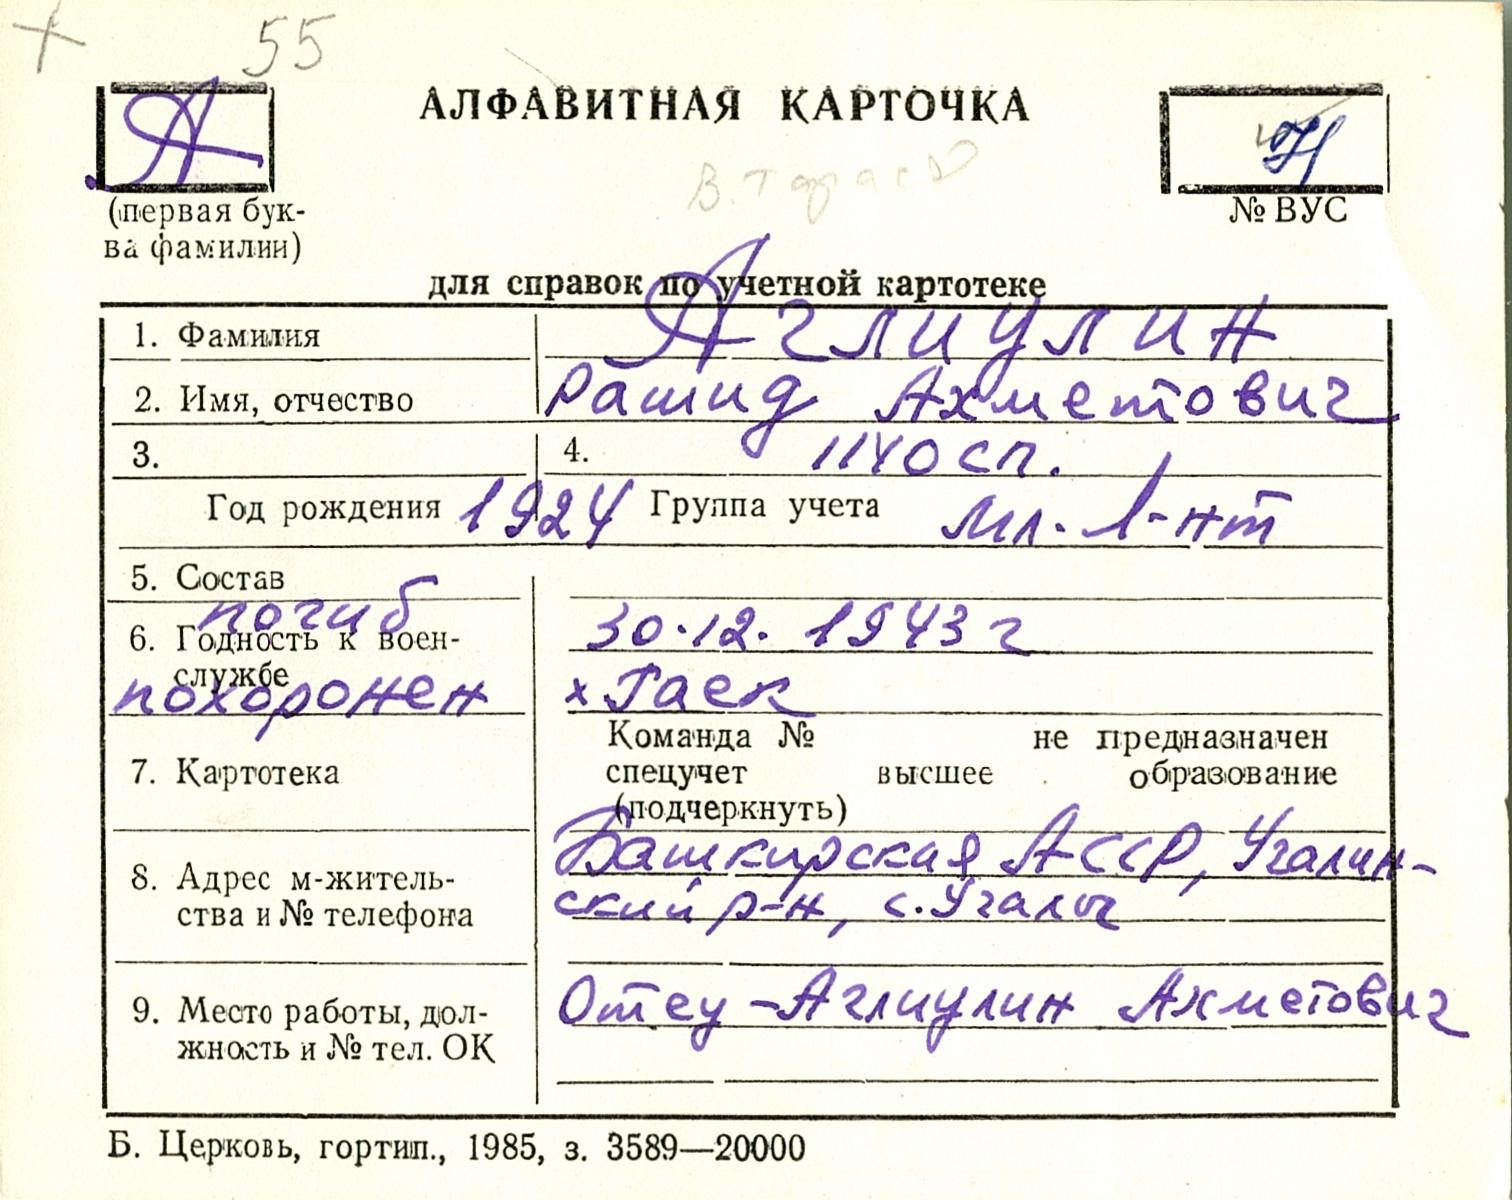 55
А
АЛФАВИТНАЯ КАРТОЧКА
(первая бук-
ва фамилии)
№ ВУС
для справок по учетной картотеке
1. Фамилия Аглиулин
2. Имя, отчество Рашид Ахметович
3. 4. 1140 сп.
Год рождения 1924 Группа учета мл. л-нт
5. Состав
погиб 30.12.1943 г
6. Годность к воен-
службе
похоронен х Гаек
Команда № не предназначен
7. Картотека спецучет высшее образование
(подчеркнуть)
Башкирская АССР, Учалин-
8. Адрес м-житель-
ский р-н, с. Учалы
ства и № телефона
9. Место работы, дол- Отец - Аглиулин Ахметович
жность и № тел. ОК
Б. Церковь, гортип., 1985, з. 3589—20000